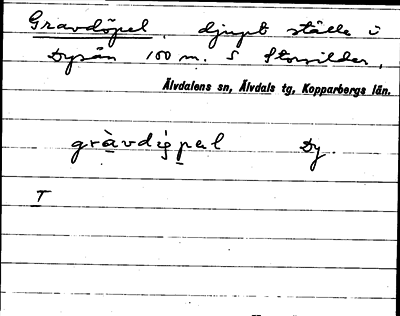 Gravdöpel, djupt ställe i
Dysån 100 m. S Storsilder,
Älvdalens sn, Älvdals tg, Kopparbergs län.
gràvdípel Dy.
T